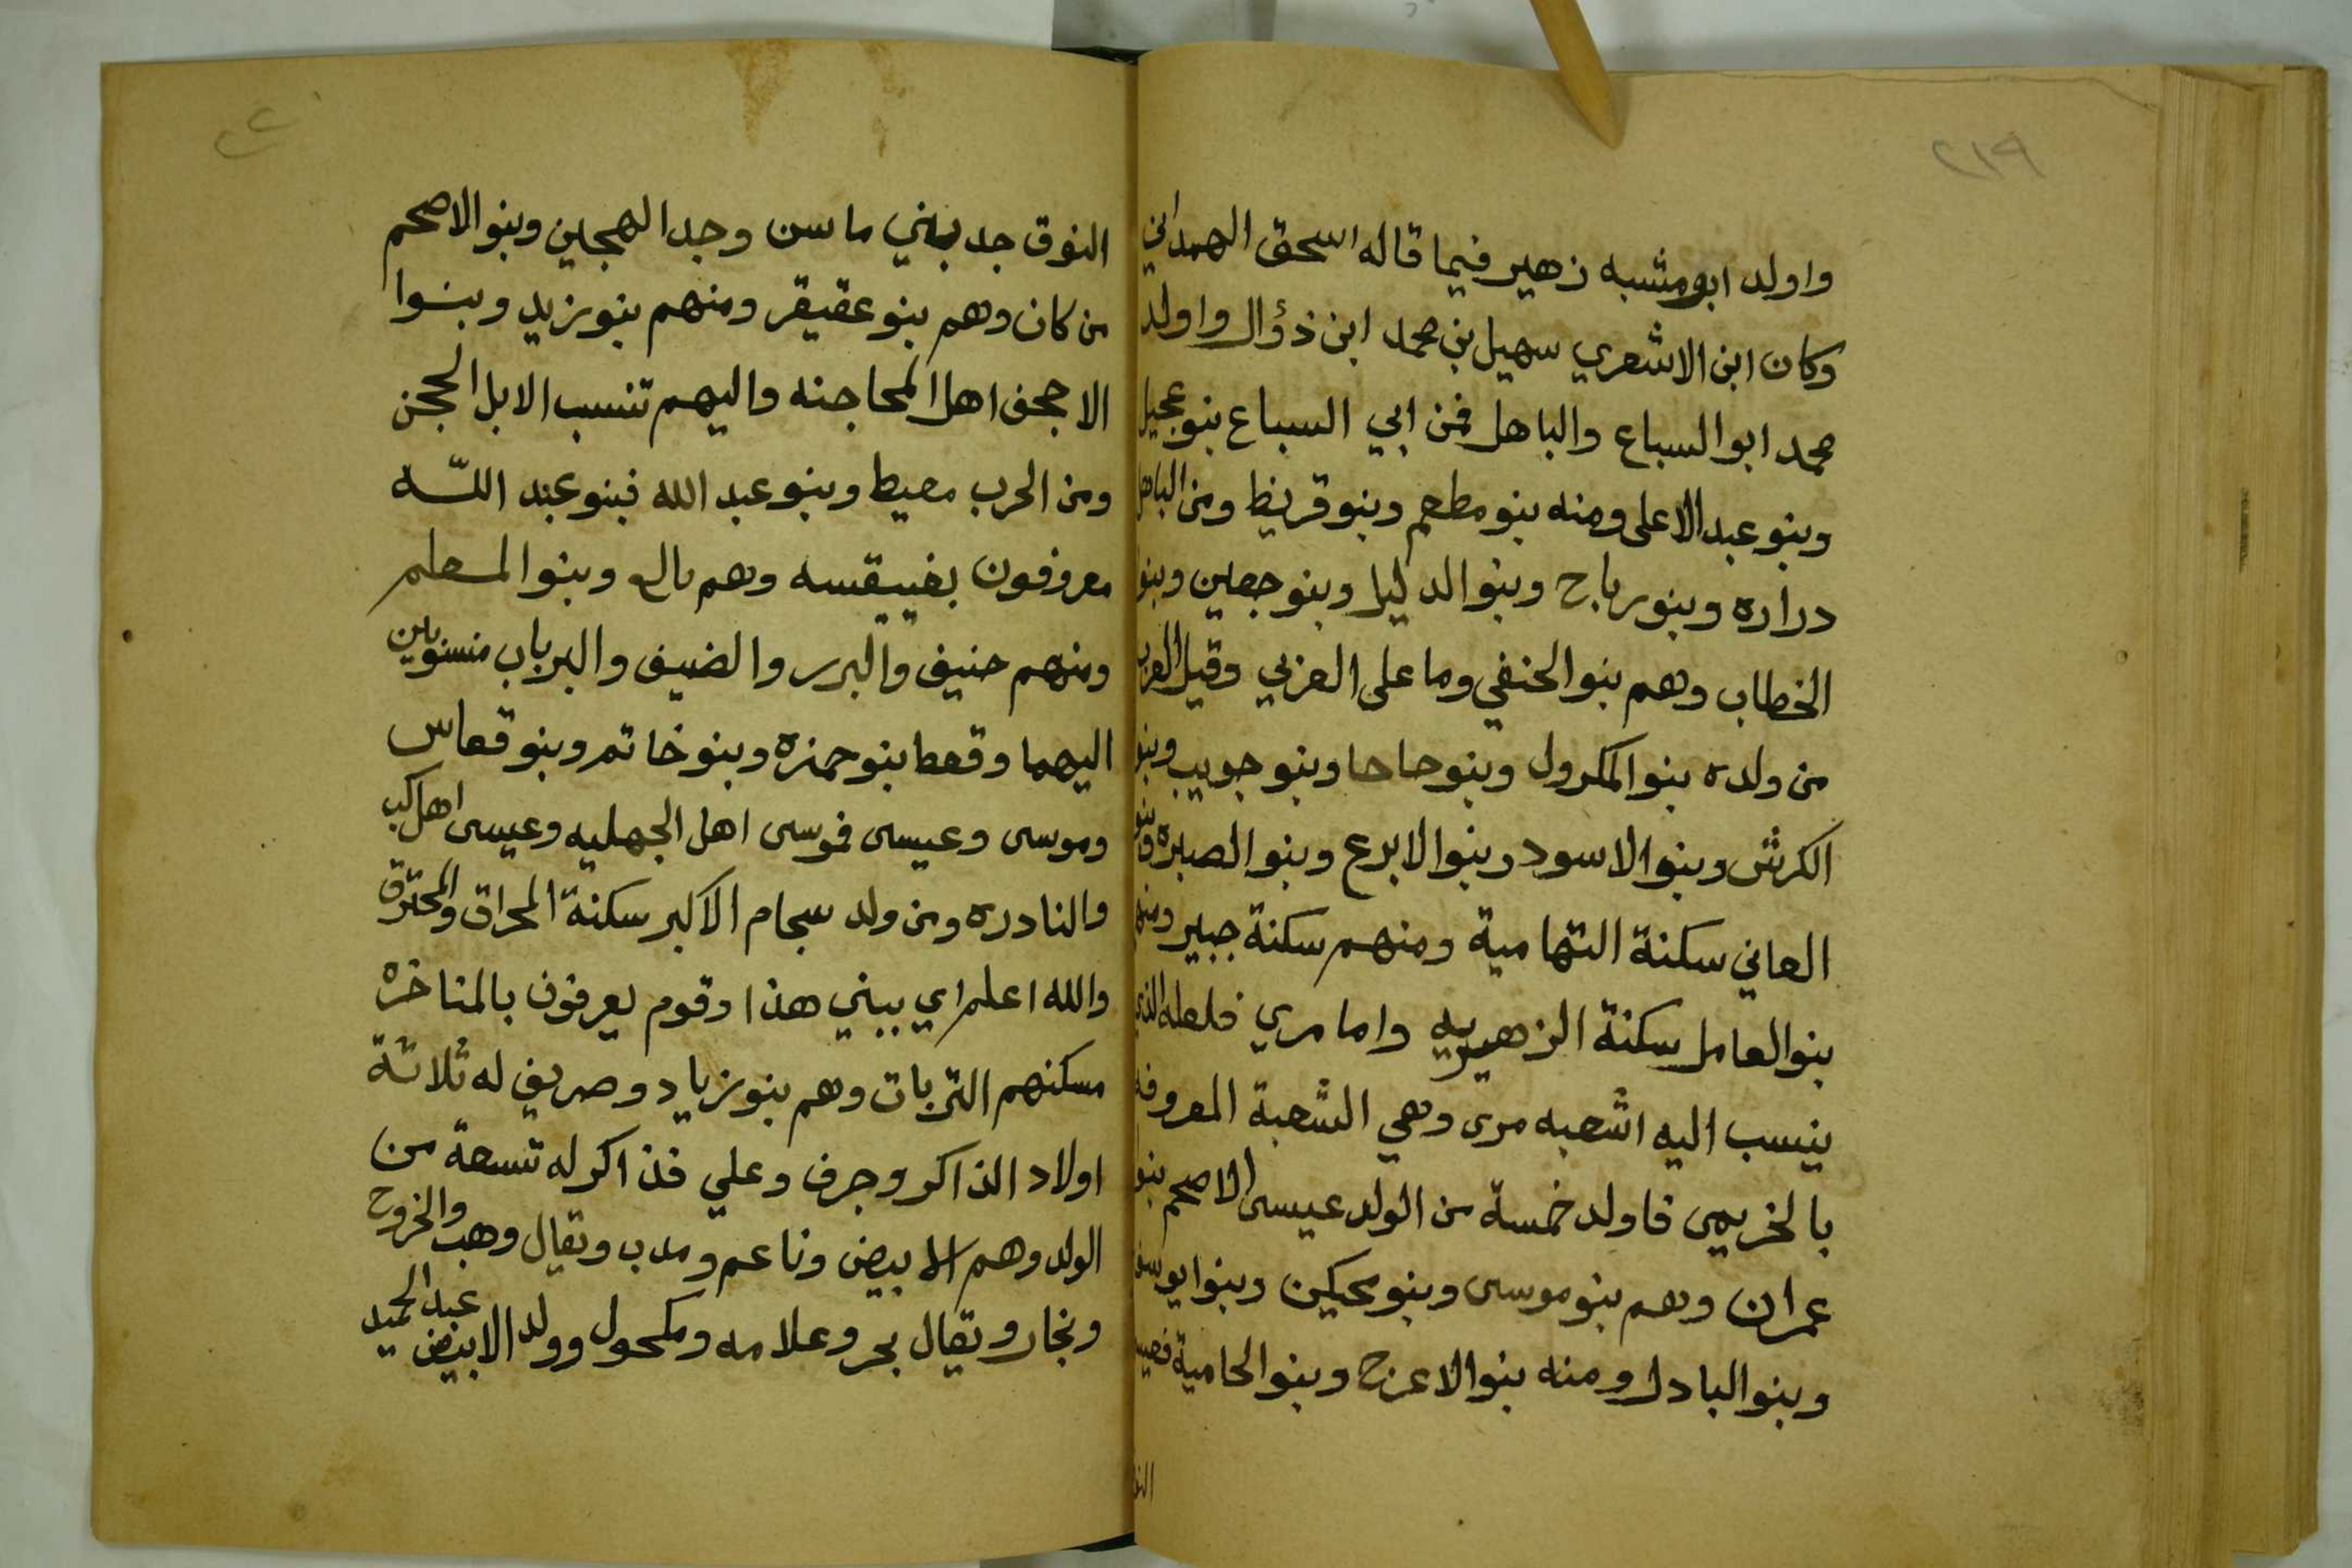 ٢١٩
واولد ابو مشبه زهير فيما قاله اسحق الهمداني
وكان ابن الاشعري سهيل بن محمد ابن ذؤال واولد
محمد ابو السباع والباهل فمن ابي السباع بنو عجيل
وبنو عبد الاعلى ومنه بنو مطعم وبنو قريظ ومن الباهل
دراره وبنو رباح وبنو الدليل وبنو جعين وبنو
الخطاب وهم بنو الحنفي وما على العزبي وقيل العرب
من ولده بنو المكرول وبنو حاحا وبنو جويب وبنو
الكرش وبنو الاسود وبنو الابرع وبنو الصبره وبنو
العاني سكنة التهامية ومنهم سكنة جبير ومنهم
بنو العامل سكنة الزهيريه واما مري فلعله الذي
ينسب اليه اشعبه مرى وهي الشعبة المعروفه
بالخريمي فاولد خمسة من الولد عيسى الاصحم بنو
عمران وهم بنو موسى وبنو محكين وبنو ايوسف
وبنو البادل ومنه بنو الاعرج وبنو الحامية
النوق
النوق جد بني ماسن وجد الهجين وبنو الاصحم
من كان وهم بنو عقيقر ومنهم بنو زيد وبنوا
الاحجف اهل المحاجنه واليهم تنسب الابل الحجن
ومن الحرب معيط وبنو عبد الله فبنو عبد اللّه
معروفون وهم وبنو المسعلم
ومنهم حنيف والبرر والضيف والبرباب منسوبين
اليهما وقعط بنو حمزه وبنو خاتم وبنو قعاس
وموسى وعيسى فموسى اهل الجهليه وعيسى اهل كب
والنادره ومن ولد سجام الاكبر سكنة المحراق والمحترق
والله اعلم اي ببني هذا وقوم يعرفون بالمناخره
مسكنهم التربات وهم بنو زياد وصريف له ثلاثة
اولاد الذاكر وجرف وعلي فذاكر له تسعة من
الولد وهم الابيض وناعم ومدب وتقال وهب والخروح
ونجار وتقال بحر وعلامه ومكحول وولد الابيض عبد الحميد